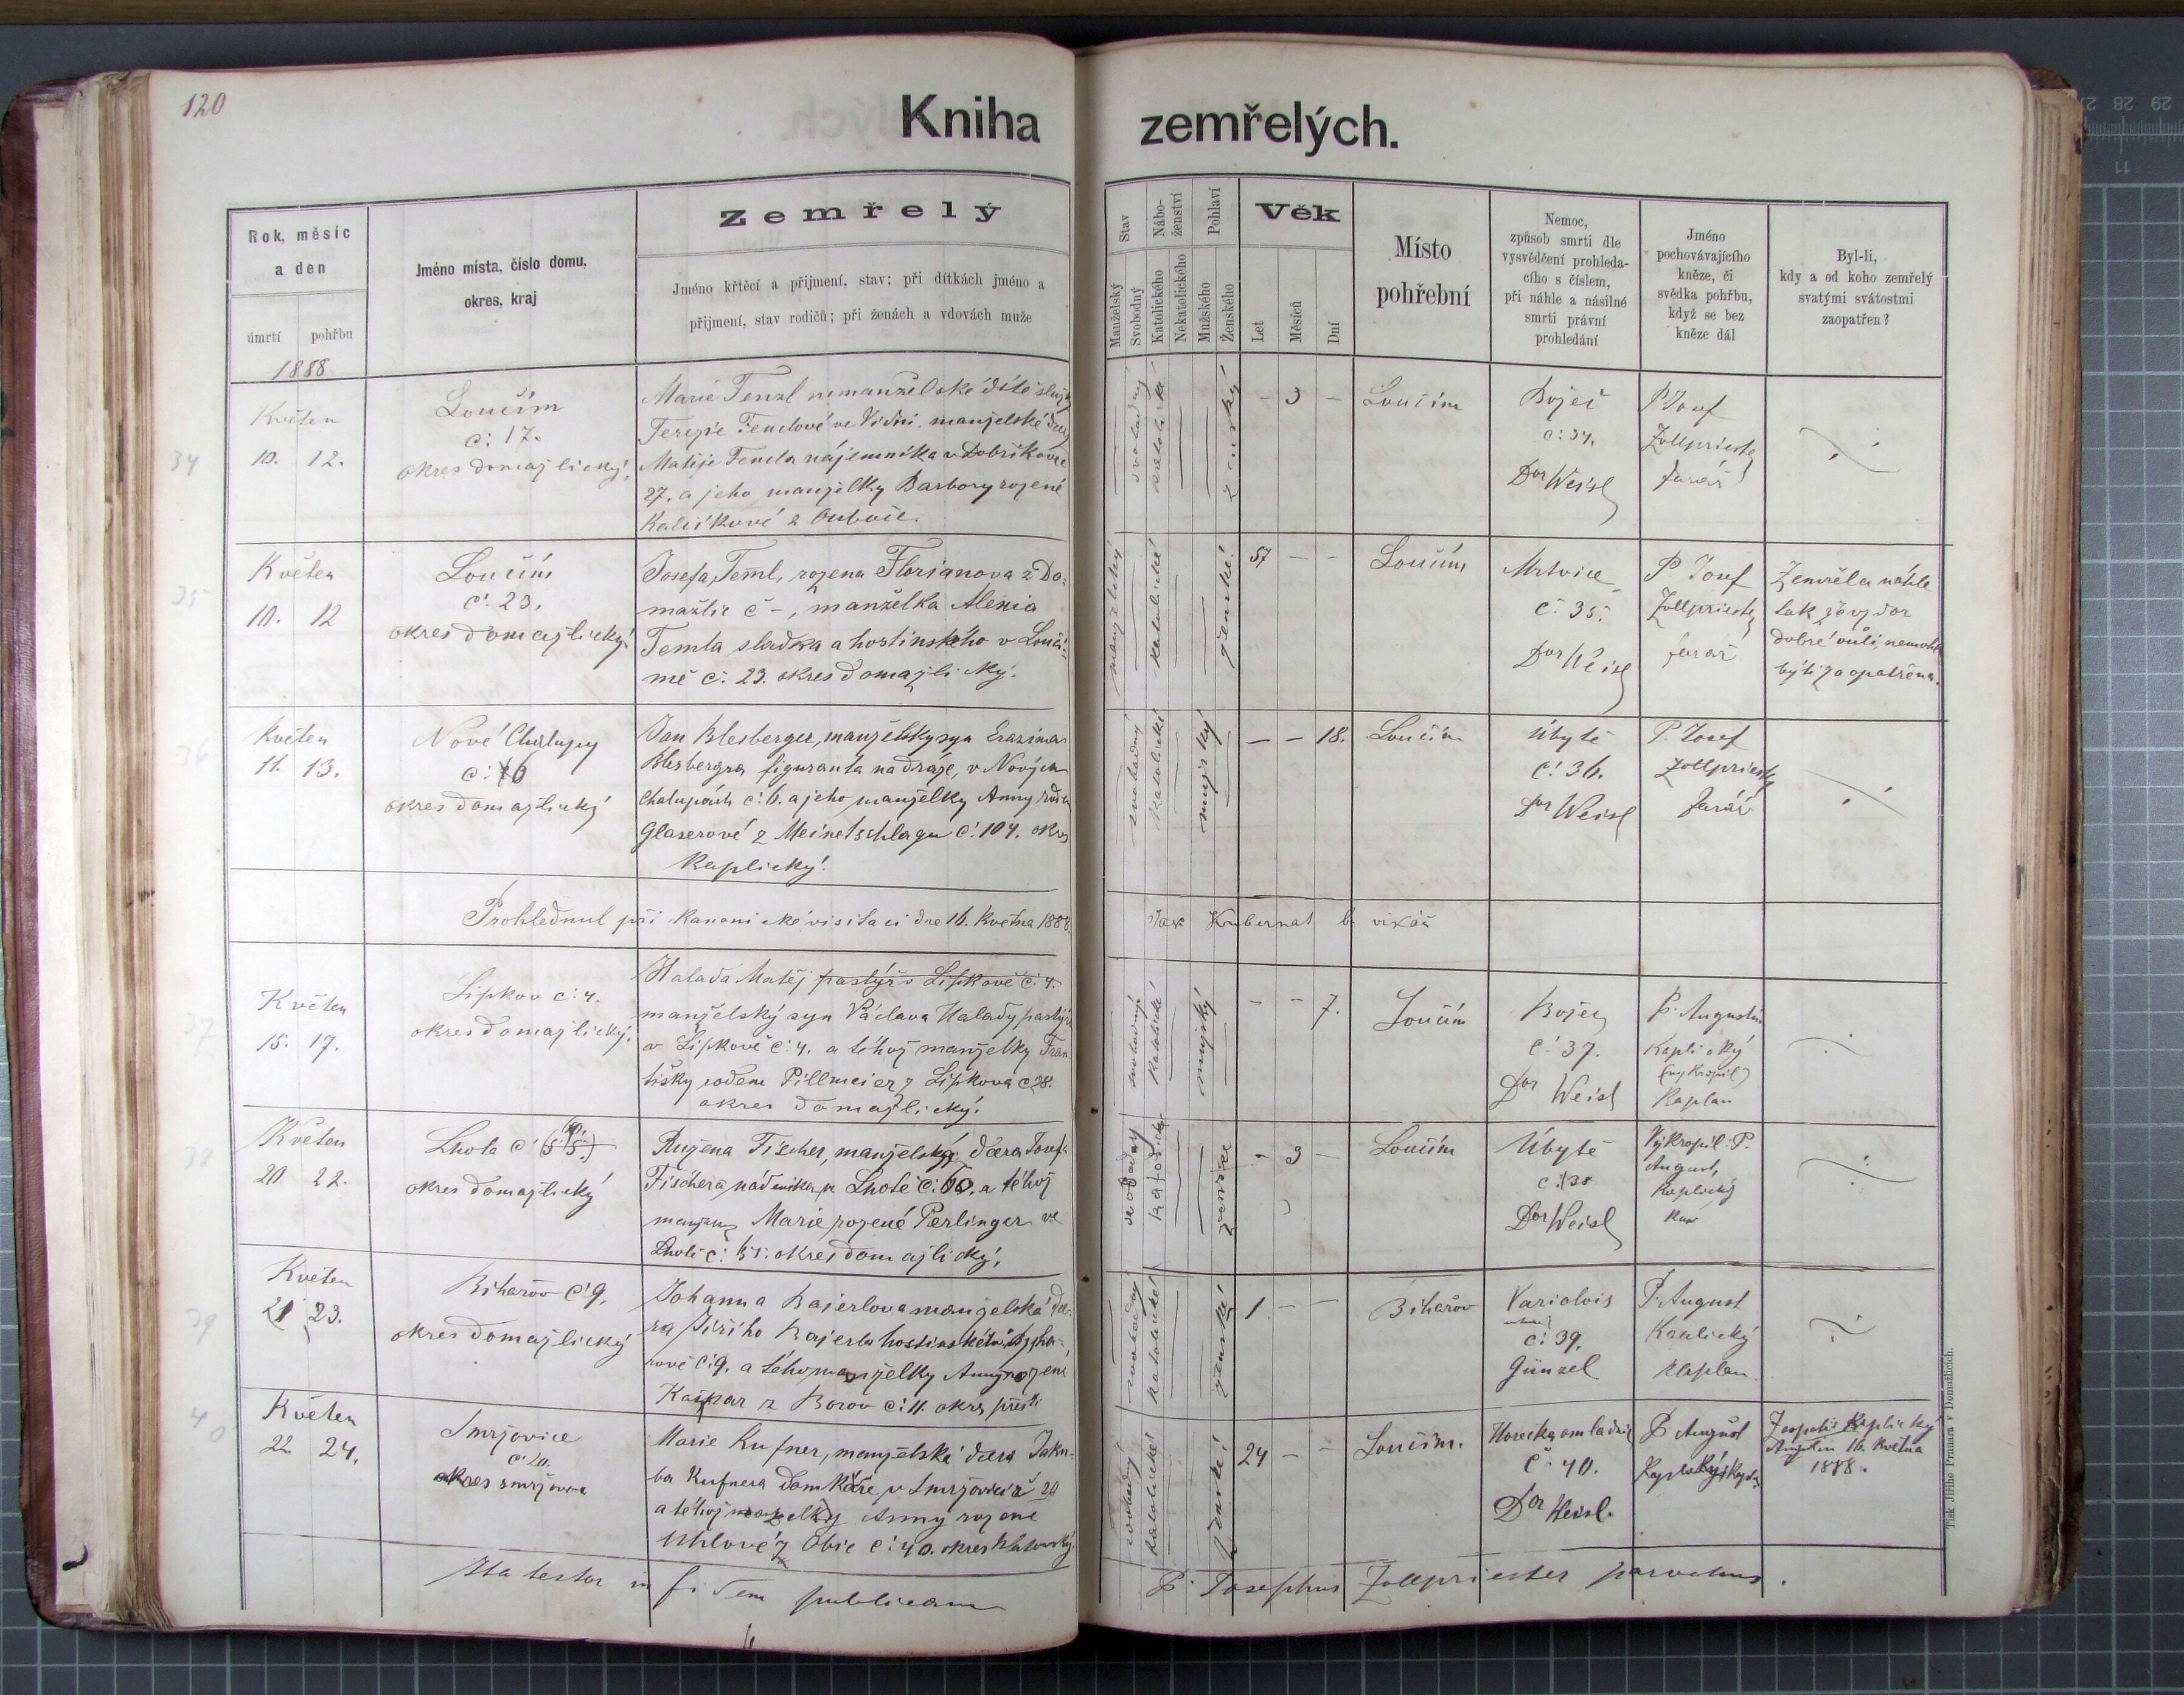 120
Kniha zemřelých.
Rok, měsíc
a den
úmrtí pohřbu
Jméno místa, číslo domu,
okres, kraj
Zemřelý
Jméno křtěcí a přijmení, stav; při dítkách jméno a
přijmení, stav rodičů; při ženách a vdovách muže
Stav
Manželský
Svobodný
Nábo-
ženství
Katolického
Nekatolického
Pohlaví
Mužského
Ženského
Věk
Let
Měsíců
Dní
Místo
pohřební
Nemoc,
způsob smrti dle
vysvědčení prohleda-
cího s číslem,
při náhle a násilné
smrti právní
prohledání
Jméno
pochovávajícího
kněze, či
svědka pohřbu,
když se bez
kněze dál
Byl-li,
kdy a od koho zemřelý
svatými svátostmi
zaopatřen?
1888
34
Květen
10. 12.
Loučím
č: 17.
okres domažlický.
Marie Tenzl nemanželské dítě
Terezie ve Vídni, manželské
Matěje nájemníka v Dobříkově
27. a jeho manželky Barbory rozené
z
svobodný
katolické
ženský
- 3 -
Loučím
č: 34.
Dor Weisl
P. Josef
Zollpriester
farář
35
Květen
10. 12
Loučím
č. 23.
okres domažlický.
Josefa Teml, rozena Florianova z Do-
mažlic č -, manželka
Temla sládka a hostinského v Louči-
mě č. 23. okres domažlický.
manželský
katolické
ženské
57 - -
Loučím
Mrtvice
č. 35.
Dor Weisl
P. Josef
Zollpriester
farář
Zemřela náhle
tak že vzdor
dobré vůli, nemohla
býti zaopatřena.
36
Květen
11. 13.
Nové Chalupy
č: 6
okres domažlický
Jan Blesberger, manželský syn Erazima
Blesbergra figuranta na dráze, v Nových
Chalupách č: 6. a jeho manželky Anny
Glaserové z Meinetschlagu č. 104. okres
kaplický.
svobodný
katolické
mužský
- - 18.
Loučím
Úbytě
č. 36.
Dor Weisl
P. Josef
Zollpriester
Farář
Prohlednul při kanonické visitaci dne 16. Května 1888. Jak Kubernat b. vikář
37
Květen
15. 17.
Lipkov č: 4.
okres domažlický.
Halada Matěj pastýř v Lipkově č: 4.
manželský syn Václava Halady pastýře
v Lipkově č: 4. a téhož manželky Fran-
tišky rodem Pillmeier z Lipkova č 28.
okres domažlický.
svobodný
katolické
mužský
- - 7.
Loučím
č. 37.
Dor Weisl
P. Augustin
Kaplický
(vykropil)
Kaplan
38
Květen
20. 22.
Lhota č.
okres domažlický
Růžena Fischer, manželská dcera Josefa
Fischera nádeníka, v Lhotě č. 60. a téhož
Marie rozené Perlinger ve
Lhotě č: 51. okres domažlický.
svobodný
katolické
ženské
- 3 -
Loučím
Úbytě
č. 38
Dor Weisl
Vykropil P.
August.
Kaplický
kap
39
Květen
21. 23.
Bihařov č 9.
okres domažlický
Johanna Bajerlova manželská dce-
ra Jiřího Bajerla hostinského
č: 9. a téhož manželky Anny rozené
Kašpar z Borov č: 11. okres
svobodný
katolické
ženské
1 - -
Bihařov
Variolois
č: 39.
Günzel
P. August
Kaplický
Kaplan.
40
Květen
22. 24.
Smržovice
č. 20.
okres
Marie Kufner, manželská dcera Jaku-
ba Kufnera domkáře v Smržovicích 20
a téhož manželky Anny rozené
Uhlové z č: 40. okres klatovský.
svobodný
katolické
ženské
24 - -
Loučím.
Horečka omladnic
č. 40.
Dor Weisl.
P. August
Kaplický, Kaplan
Zaopatř. Kaplický
Augustin 16. Května
1888.
Ita testor in fidem publicam P. Josephus Zollpriester parochus.
Tisk Jiřího Prunara v Domažlicích.